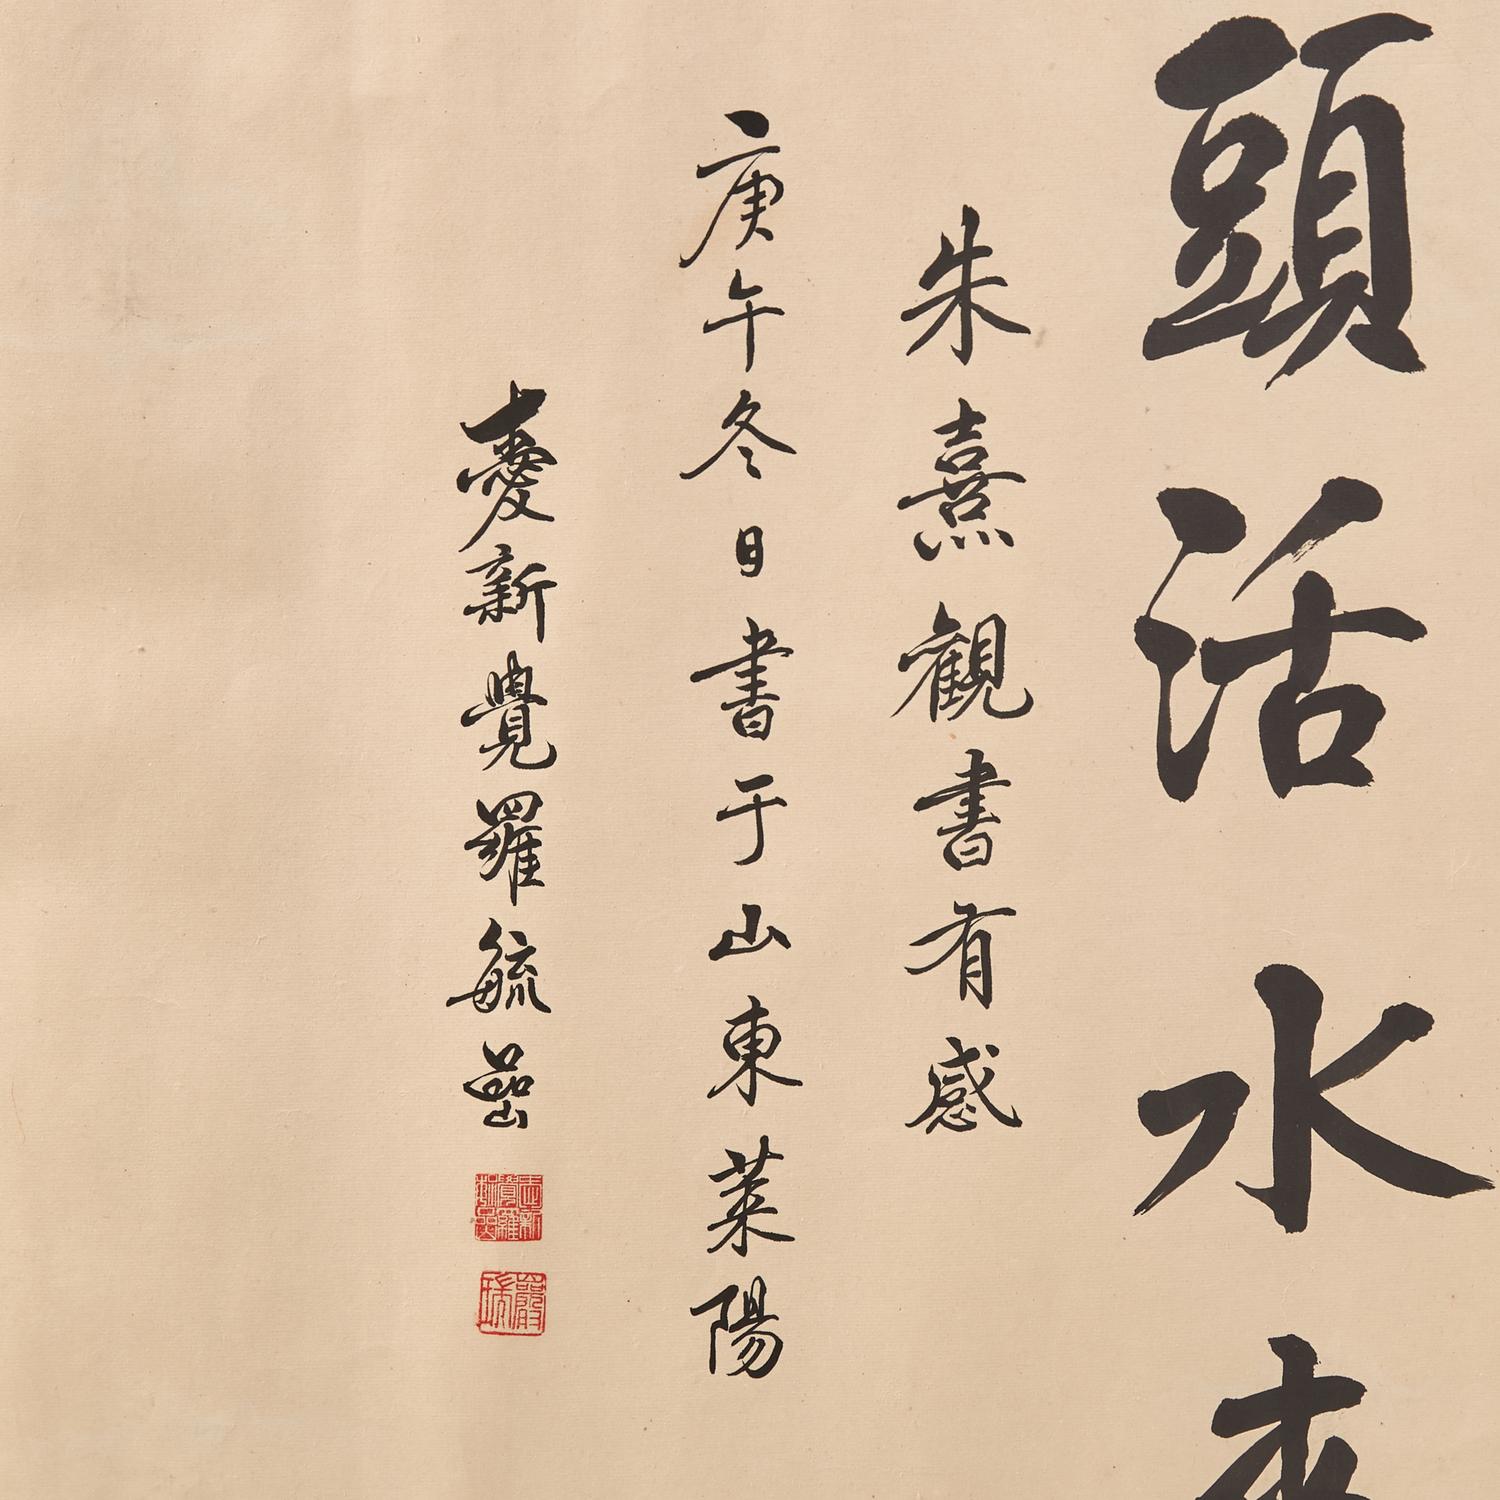 頭活水来
朱熹観書有感
庚午冬日書于山東莱陽
愛新覺羅毓嵒